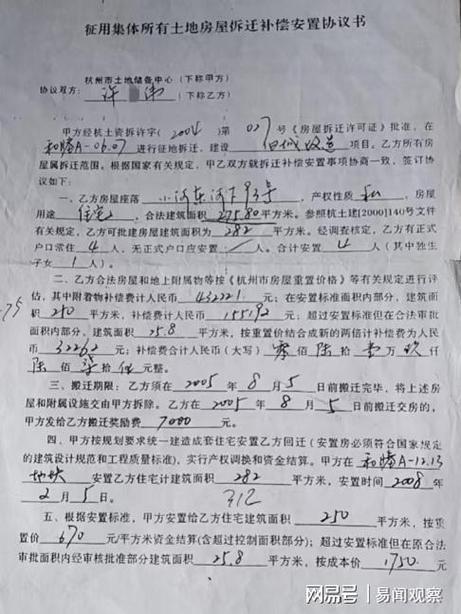 征用集体所有土地房屋拆迁补偿安置协议书
杭州市土地储备中心（下称甲方）
协议双方： 许 （下称乙方）
甲方经杭土资拆许字（2004）第 027 号《房屋拆迁许可证》批准，在
和睦A-06.07 进行征地拆迁，建设 旧城改造 项目。乙方所有房
屋属拆迁范围。根据国家有关规定，甲乙双方就拆迁补偿安置事项协商一致，签订协
议如下：
一、乙方房屋座落 小河东河下93号 ，产权性质 私 ，房屋
用途 住宅 ，合法建筑面积 275.80 平方米。参照杭土建[2000]140号文件
有关规定，乙方可批建房屋建筑面积为 282 平方米。经调查核定，乙方有正式
户口常住 4 人、无正式户口应安置 / 人。合计安置 4 人（其中独生
子女 1 人）。
二、乙方合法房屋和地上附属物等按《杭州市房屋重置价格》等有关规定进行评
估，其中附着物补偿费计人民币 432221 元；在安置标准面积内部分，建筑面
积 250 平方米，补偿费计人民币 155192 元；超过安置标准但在合法审批
面积内部分，建筑面积 25.8 平方米，按重置价结合成新的两倍计补偿费为人民
币 32262 元；补偿费合计人民币（大写） 零 佰 陆 拾 壹 万 玖 仟
陆 佰 柒 拾 伍 元整。
三、搬迁期限：乙方须在 2005 年 8 月 5 日前搬迁完毕，将上述房
屋和附属设施交由甲方拆除。乙方在 2005 年 8 月 5 日前搬迁交房的，
甲方发给乙方搬迁奖励费 7000 元。
四、甲方按规划要求统一建造成套住宅安置乙方回迁（安置房必须符合国家规定
的建筑设计规范和工程质量标准），实行产权调换和资金结算。甲方在 和睦A-12.13
地块 安置乙方住宅计建筑面积 282 平方米，安置时间 2008 年
2 月 5 日。
五、根据安置标准，甲方安置给乙方住宅建筑面积 250 平方米，按重
置价 670 元/平方米资金结算(含超过控制面积部分)；超过安置标准但在原合法
审批面积内经审核批准部分建筑面积 25.8 平方米，按成本价 1750 元
网易号 | 易闻观察